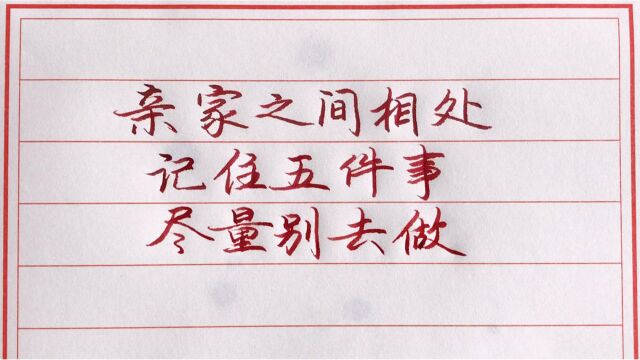 亲家之间相处
记住五件事
尽量别去做